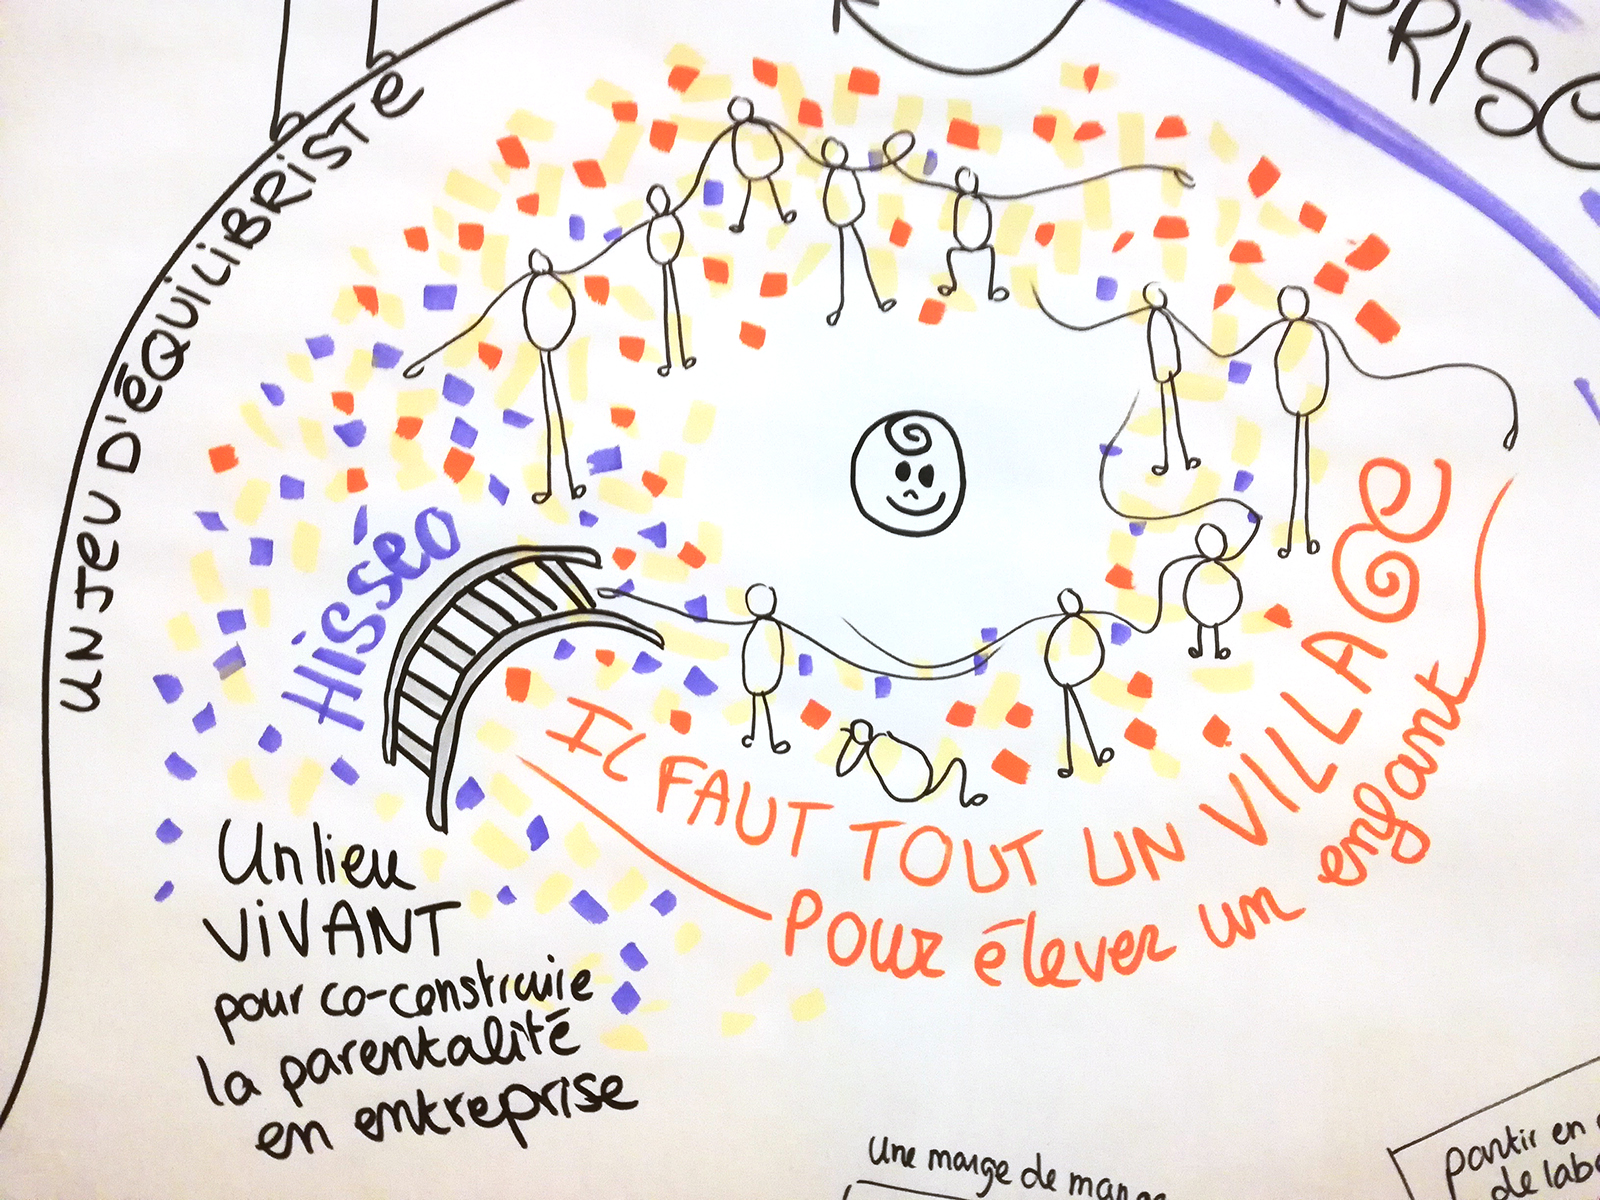 UN JEU D'ÉQUILIBRISTE
HISSÉO
IL FAUT TOUT UN VILLAGE
POUR élever un enfant
Un lieu
VIVANT
pour co-construire
la parentalité
en entreprise
une marge de
partir en
de